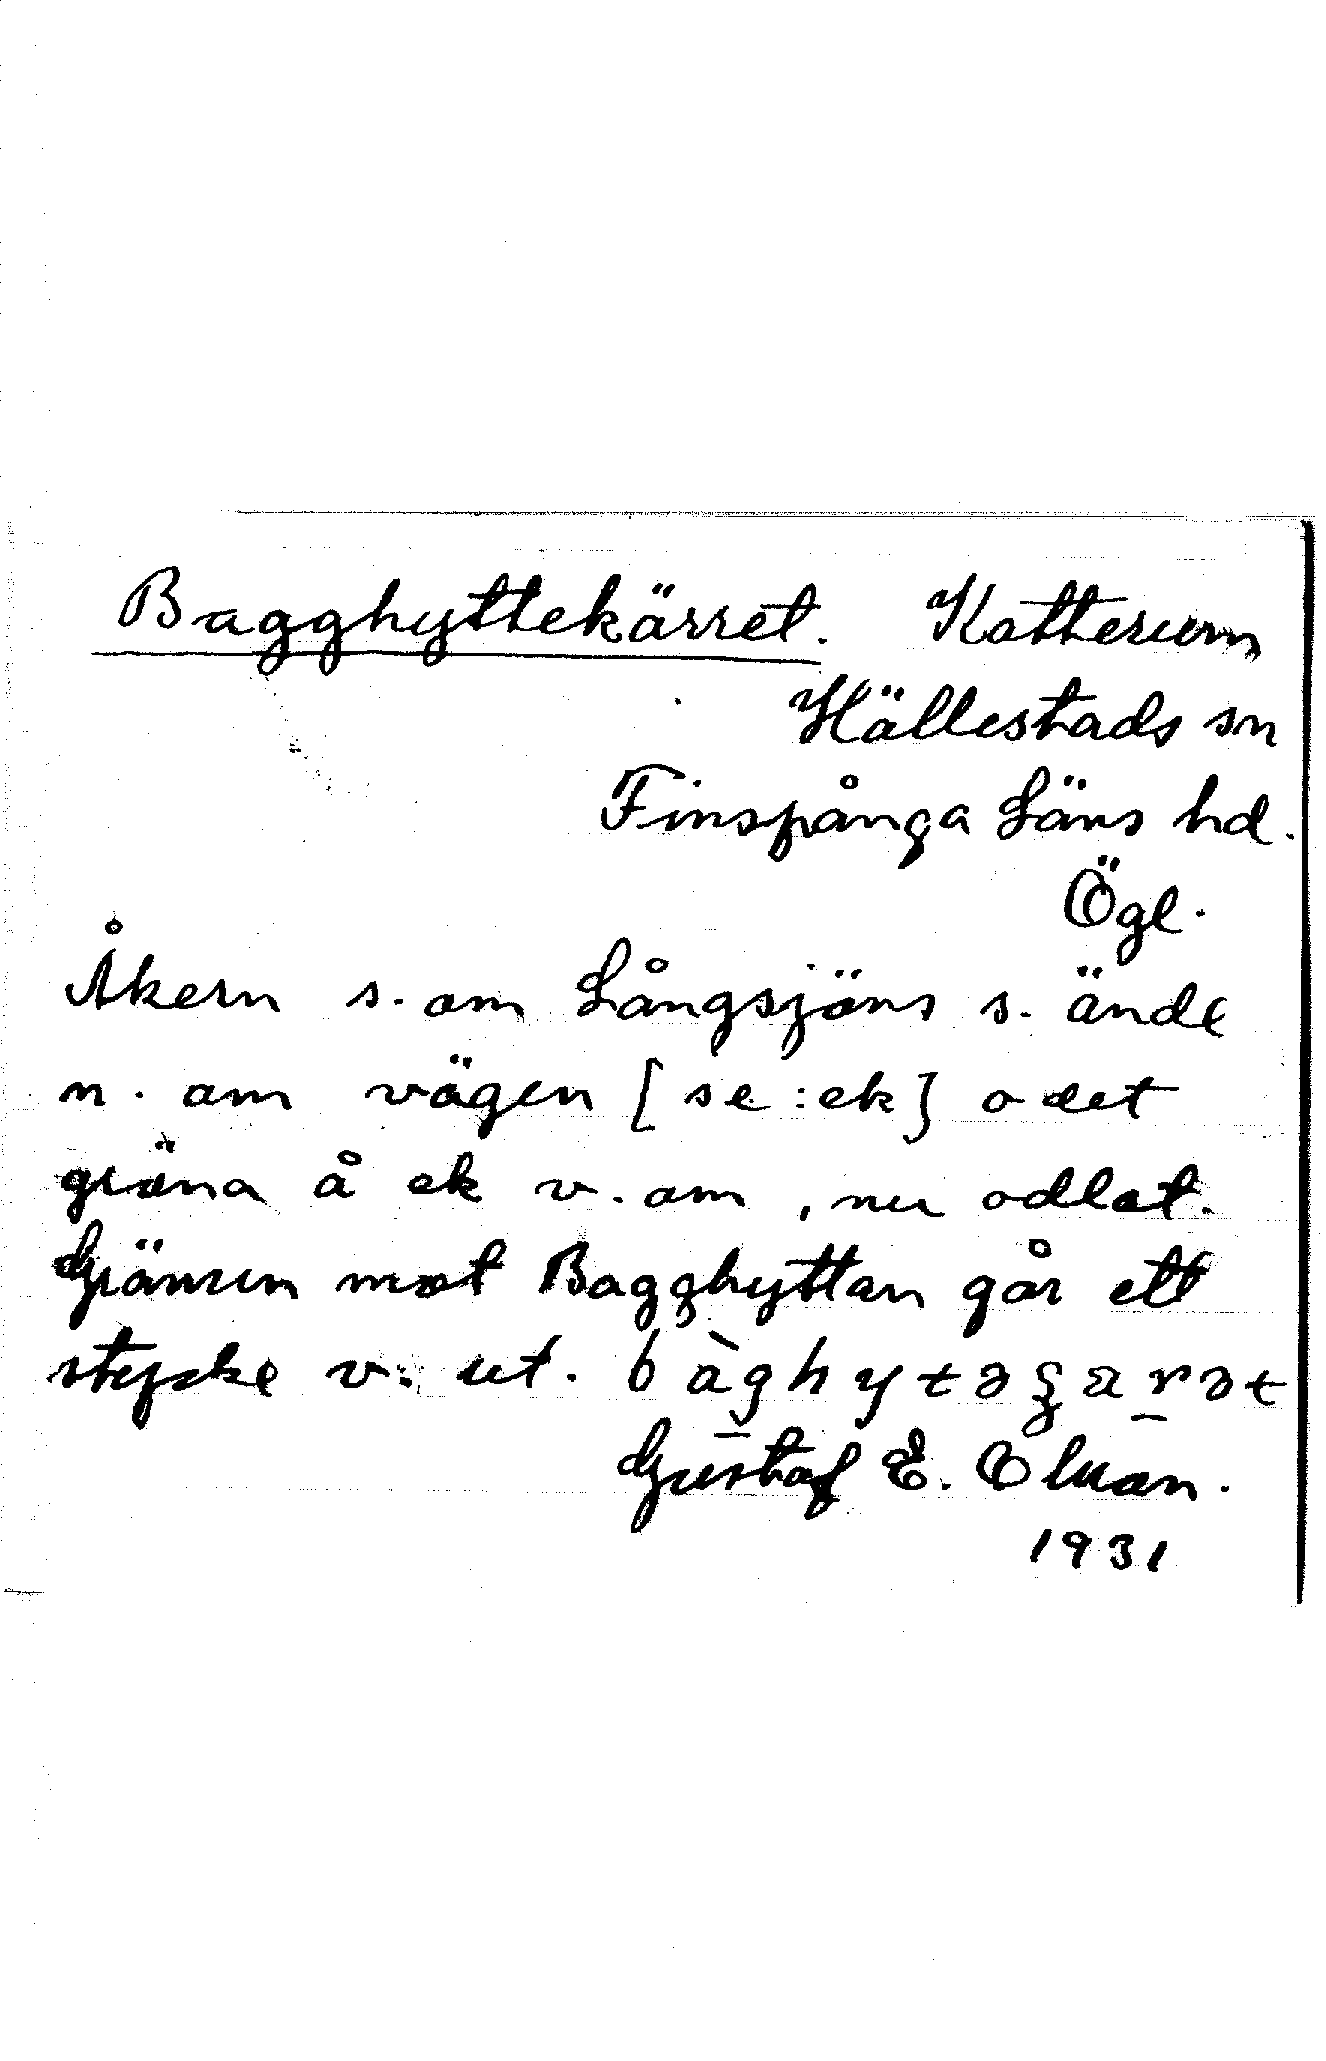 Bagghyttekärret. Katterum
Hällestads sn
Finspånga Läns hd.
Ögl.
Åkern s. om Långsjöns s. ände
n. om vägen [se: ek] o det
gröna å ek v. om, nu odlat.
Gränsen mot Bagghyttan går ett
stycke v. ut. bàghytəgarət
Gustaf E. Olman.
1931